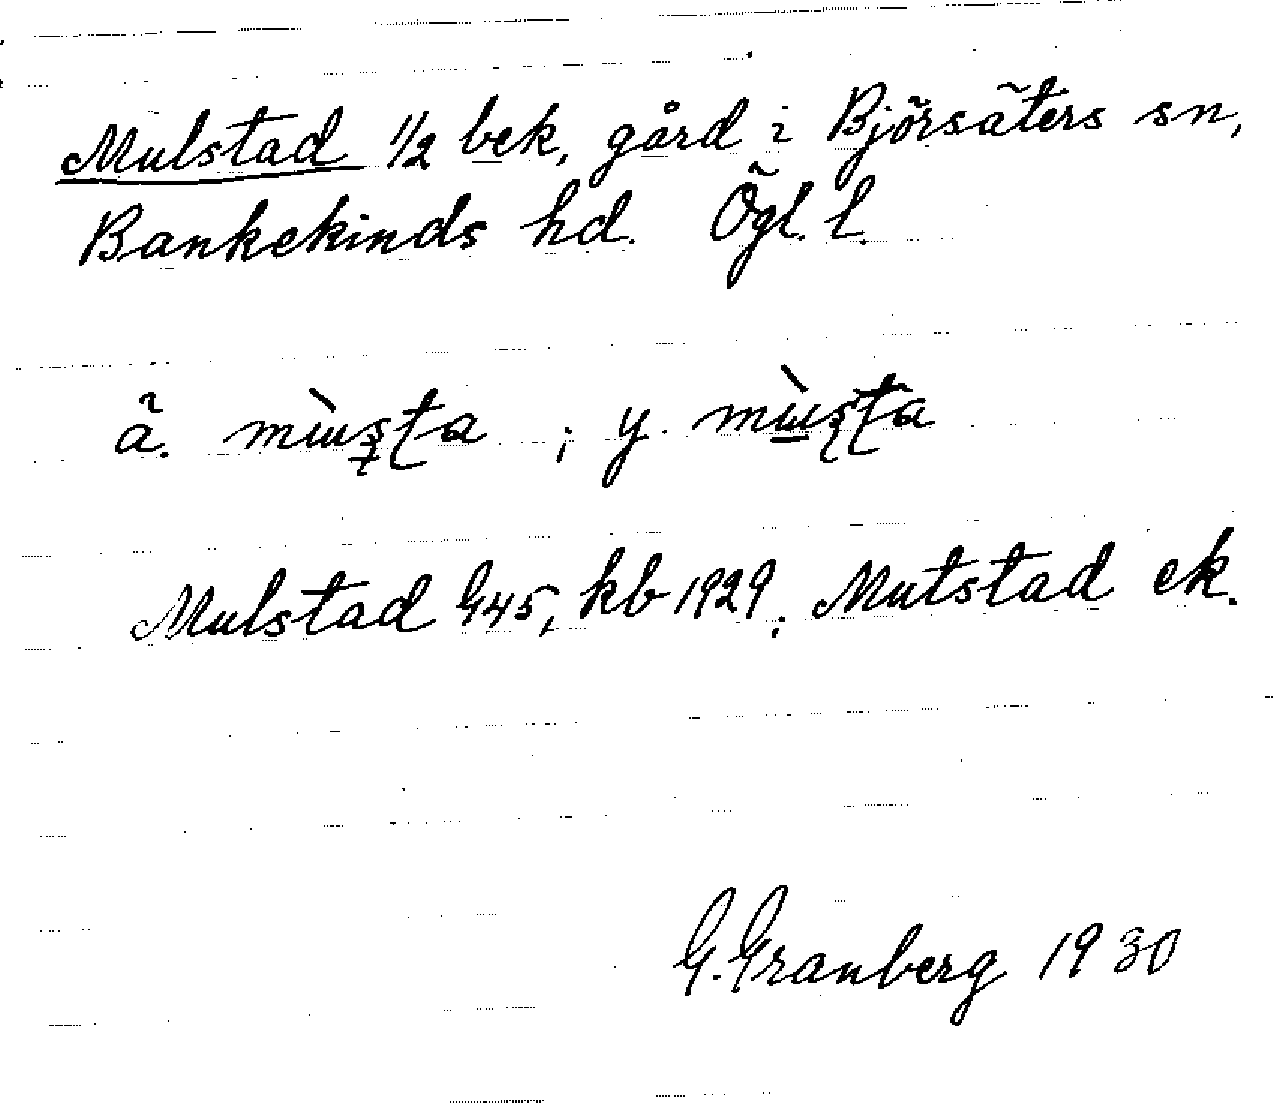 Mulstad 1/2 bek, gård i Björsäters sn,
Bankekinds hd. Ögl. l.
ä. ; y.
Mulstad G45, kb 1929; Mutstad ek.
G. Granberg 1930